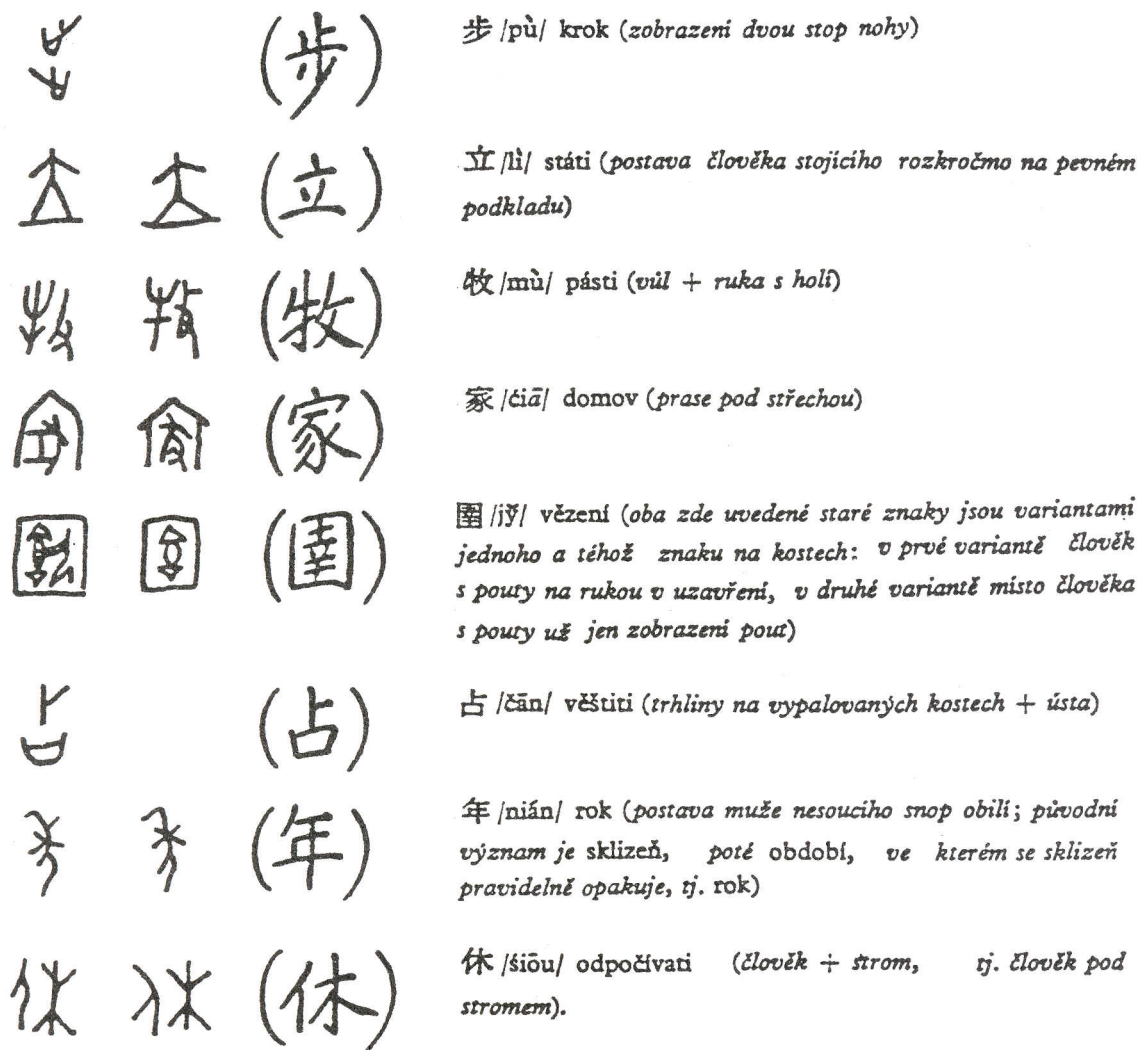 (步) 步 /pù/ krok (zobrazení dvou stop nohy)
(立) 立 /lì/ státi (postava člověka stojícího rozkročmo na pevném
podkladu)
(牧) 牧 /mù/ pásti (vůl + ruka s holí)
(家) 家 /ćiā/ domov (prase pod střechou)
(圉) 圉 /jŷ/ vězení (oba zde uvedené staré znaky jsou variantami
jednoho a téhož znaku na kostech: v prvé variantě člověk
s pouty na rukou v uzavření, v druhé variantě místo člověka
s pouty už jen zobrazení pout)
(占) 占 /čān/ věštiti (trhliny na vypalovaných kostech + ústa)
(年) 年 /nián/ rok (postava muže nesoucího snop obilí; původní
význam je sklizeň, poté období, ve kterém se sklizeň
pravidelně opakuje, tj. rok)
(休) 休 /śiōu/ odpočívati (člověk + strom, tj. člověk pod
stromem).